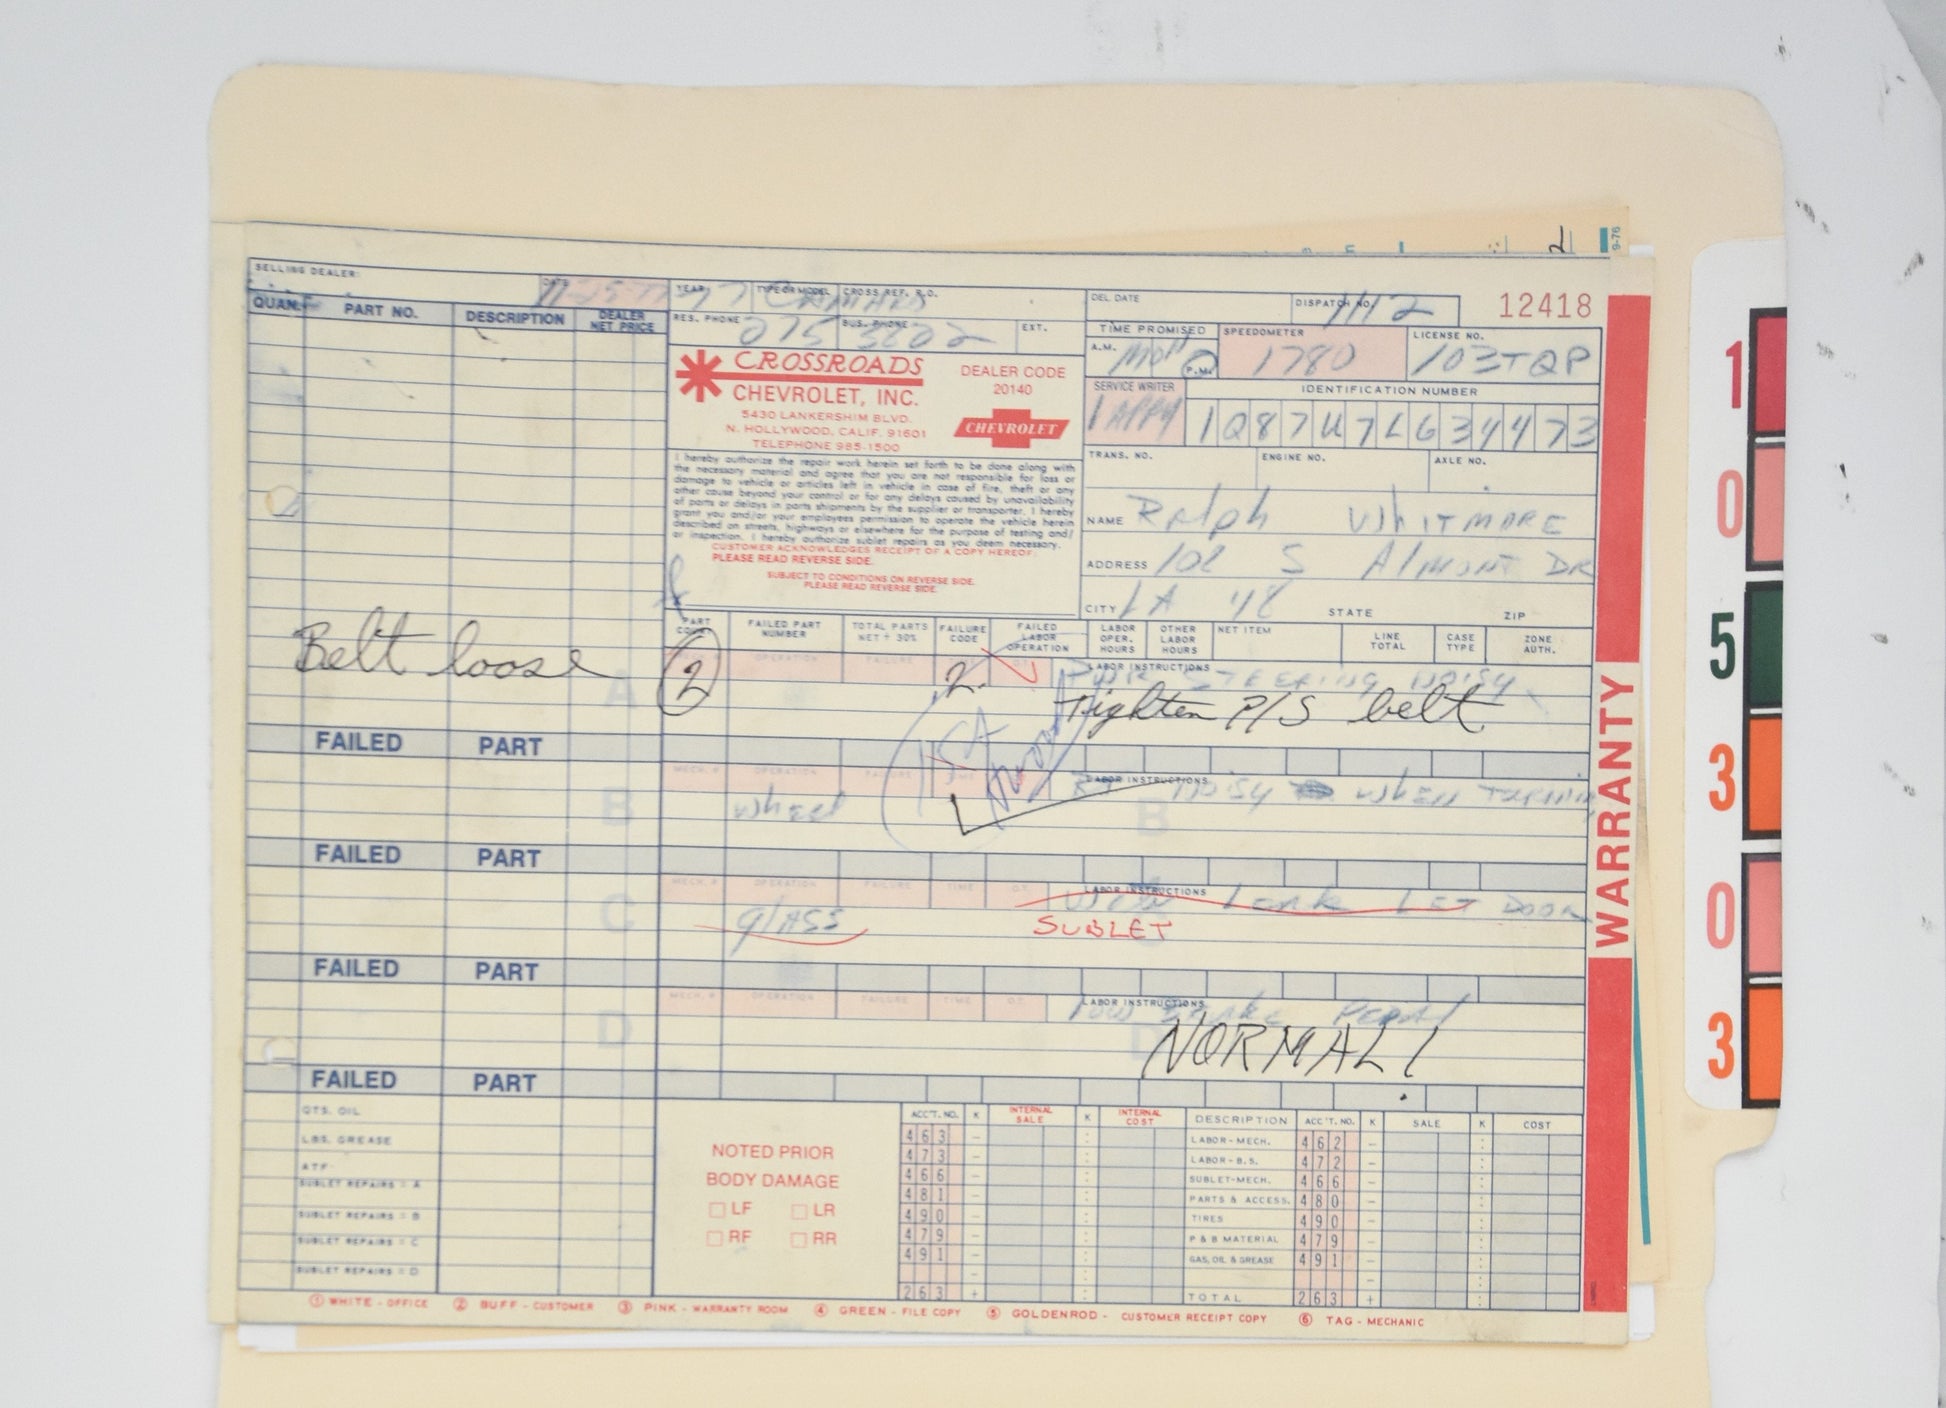 2
9-76
SELLING DEALER:
DATE
YEAR
TYPE OR MODEL
CROSS REF. R.O.
DEL. DATE
DISPATCH NO.
12418
77
CAMARO
1112
QUAN.
PART NO.
DESCRIPTION
DEALER NET PRICE
RES. PHONE
BUS. PHONE
EXT.
275 3202
TIME PROMISED
A.M.
P.M.
MON
SPEEDOMETER
1780
LICENSE NO.
103TQP
CROSSROADS
CHEVROLET, INC.
5430 LANKERSHIM BLVD.
N. HOLLYWOOD, CALIF. 91601
TELEPHONE 985-1500
DEALER CODE
20140
CHEVROLET
SERVICE WRITER
IDENTIFICATION NUMBER
1Q87U7L634473
I hereby authorize the repair work herein set forth to be done along with
the necessary material and agree that you are not responsible for loss or
damage to vehicle or articles left in vehicle in case of fire, theft or any
other cause beyond your control or for any delays caused by unavailability
of parts or delays in parts shipments by the supplier or transporter. I hereby
grant you and/or your employees permission to operate the vehicle herein
described on streets, highways or elsewhere for the purpose of testing and/
or inspection. I hereby authorize sublet repairs as you deem necessary.
CUSTOMER ACKNOWLEDGES RECEIPT OF A COPY HEREOF.
PLEASE READ REVERSE SIDE.
SUBJECT TO CONDITIONS ON REVERSE SIDE.
PLEASE READ REVERSE SIDE.
TRANS. NO.
ENGINE NO.
AXLE NO.
NAME Ralph WhITMARE
ADDRESS 102 S AlMONT DR
CITY LA 48
STATE
ZIP
FAILED PART NUMBER
TOTAL PARTS NET + 30%
FAILURE CODE
FAILED LABOR OPERATION
LABOR OPER. HOURS
OTHER LABOR HOURS
NET ITEM
LINE TOTAL
CASE TYPE
ZONE AUTH.
Belt loose
A
2
2.
LABOR INSTRUCTIONS
PWR STEERING NOISY
Tighten P/S belt
FAILED PART
MECH. # OPERATION FAILURE TIME
B
LABOR INSTRUCTIONS
NOISY WhEN TURNING
whEEl
B
FAILED PART
MECH. # OPERATION FAILURE TIME O.T.
C
LABOR INSTRUCTIONS
Leak LFT DOOR
glASS
SUBLET
FAILED PART
MECH. # OPERATION FAILURE TIME O.T.
D
LABOR INSTRUCTIONS
low BRAKE PEDAl
NORMAL
FAILED PART
QTS. OIL
LBS. GREASE
ATF
SUBLET REPAIRS : A
SUBLET REPAIRS : B
SUBLET REPAIRS : C
SUBLET REPAIRS : D
NOTED PRIOR
BODY DAMAGE
LF LR
RF RR
ACC'T. NO. K INTERNAL SALE K INTERNAL COST DESCRIPTION ACC'T. NO. K SALE K COST
463 LABOR-MECH. 462
473 LABOR-B.S. 472
466 SUBLET-MECH. 466
481 PARTS & ACCESS. 480
490 TIRES 490
479 P & B MATERIAL 479
491 GAS, OIL & GREASE 491
263 + TOTAL 263 +
① WHITE - OFFICE ② BUFF - CUSTOMER ③ PINK - WARRANTY ROOM ④ GREEN - FILE COPY ⑤ GOLDENROD - CUSTOMER RECEIPT COPY ⑥ TAG - MECHANIC
WARRANTY
1
0
5
3
0
3